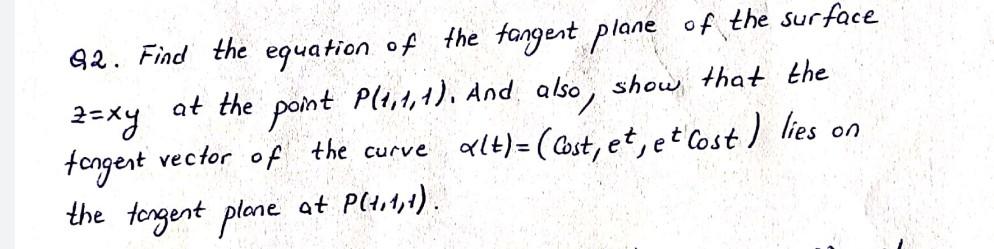 Q2. Find the equation of the tangent plane of the surface
z=xy at the point P(1,1,1). And also, show that the
tangent vector of the curve α(t)=(Cost, e^t, e^t Cost) lies on
the tangent plane at P(1,1,1).